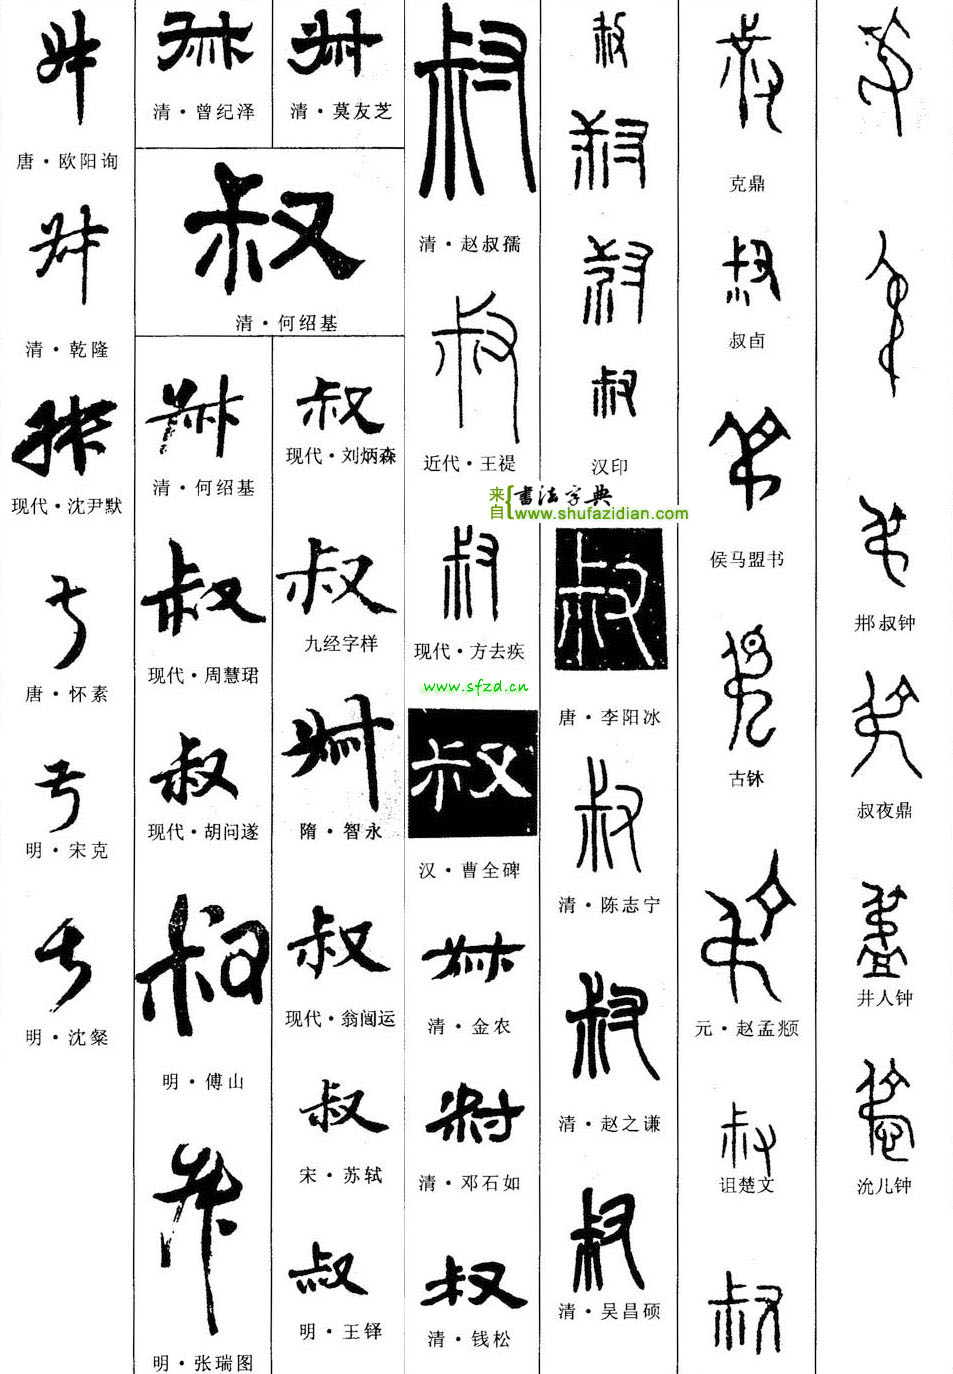 邢叔钟
叔夜鼎
井人钟
沇儿钟
克鼎
叔卣
侯马盟书
古鉥
元·赵孟頫
叔
诅楚文
叔
叔
汉印
叔
唐·李阳冰
叔
清·陈志宁
叔
清·赵之谦
叔
清·吴昌硕
叔
清·赵叔孺
叔
近代·王禔
来自{书法字典
www.shufazidian.com
叔
现代·方去疾
www.sfzd.cn
叔
汉·曹全碑
清·金农
清·邓石如
叔
清·钱松
清·莫友芝
清·曾纪泽
叔
清·何绍基
叔
现代·刘炳森
叔
九经字样
隋·智永
叔
现代·翁闿运
叔
宋·苏轼
叔
明·王铎
清·何绍基
叔
现代·周慧珺
叔
现代·胡问遂
叔
明·傅山
明·张瑞图
唐·欧阳询
清·乾隆
现代·沈尹默
唐·怀素
明·宋克
明·沈粲